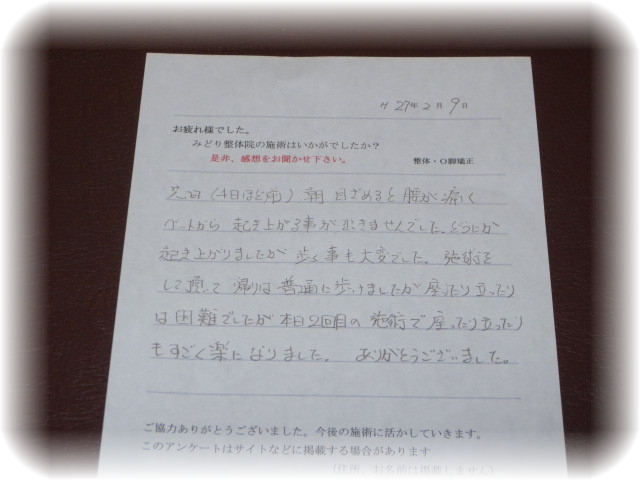 H 27年2月9日
お疲れ様でした。
みどり整体院の施術はいかがでしたか?
是非、感想をお聞かせ下さい。 整体・O脚矯正
先日(4日ほど前)朝 目ざめると腰が痛く
ベットから 起き上がる事が出きませんでした。どうにか
起き上がりましたが 歩く事も大変でした。 施術を
して頂いて 帰りは普通に歩けましたが 座ったり立ったり
は困難でしたが 本日2回目の施術で座ったり立ったり
もすごく楽になりました。 ありがとうございました。
ご協力ありがとうございました。今後の施術に活かしていきます。
このアンケートはサイトなどに掲載する場合があります
(住所、お名前は掲載しません)